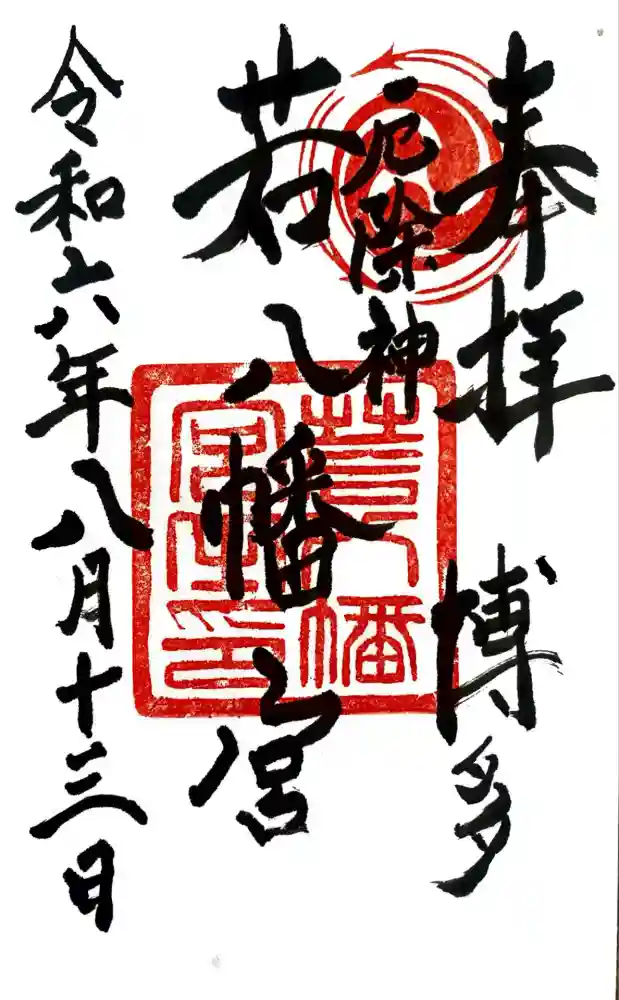 奉拝
博多
厄除神
若八幡宮
令和六年八月十三日